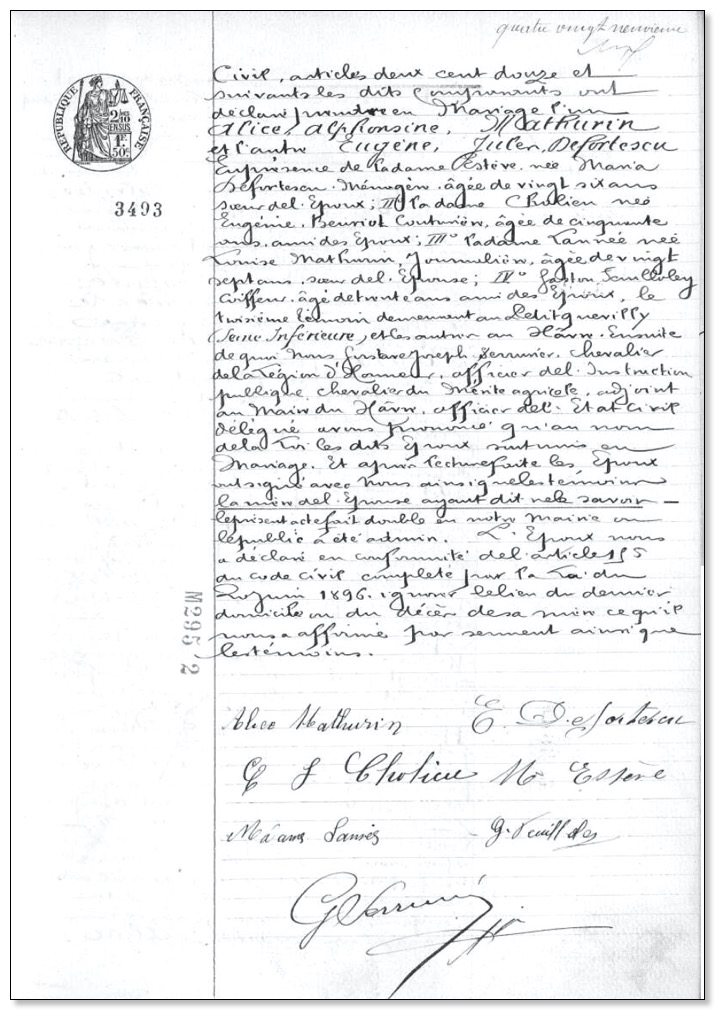 quatre vingt neuvième
RÉPUBLIQUE FRANÇAISE
3493
Civil, articles deux cent douze et
suivants les dits Comparants ont
déclaré prendre en Mariage l'un
Alice, Alphonsine, Mathurin
et l'autre Eugène, Jules, Defortescu
En présence de I° Madame Estève née Maria
Defortescu Ménagère, âgée de vingt six ans
sœur de l'Epoux; II° Madame Cholieu née
Eugénie Henriot Couturière, âgée de cinquante
ans, amie des Epoux; III° Madame née
Louise Mathurin, Journalière, âgée de vingt
sept ans, sœur de l'Epouse; IV° Gaston
Coiffeur, âgé de trente ans ami des Epoux, le
troisième témoin demeurant au Petit quevilly
(Seine Inférieure) et les autres au Hâvre. Ensuite
de quoi Nous Gustave Joseph Serrurier, Chevalier
de la Légion d'Honneur, officier de l'Instruction
publique, chevalier du Mérite agricole, adjoint
au Maire du Hâvre, officier de l'Etat Civil
délégué avons prononcé qu'au nom
de la Loi les dits Epoux sont unis en
Mariage. Et après lecture faite les Epoux
ont signé avec Nous ainsi que les témoins
la mère de l'Epouse ayant dit ne le savoir
le présent acte fait double en notre Mairie où
le public a été admis. L'Epoux nous
a déclaré en conformité de l'article 155
du Code Civil complété par la Loi du
20 juin 1896, ignorer le lieu du dernier
domicile ou du décès de sa mère ce qu'il
nous a affirmé par serment ainsi que
les témoins.
M295 2
Alice Mathurin E. Defortescu
Cholieu Estève
G.